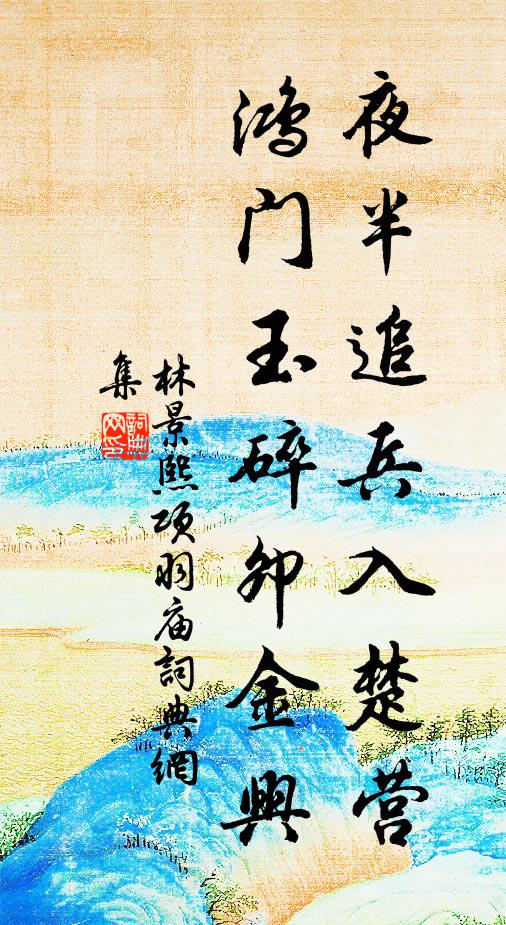 夜半追兵入楚营
鸿门玉碎卯金興
林景熙项羽庙詞典網
集
詞典網集